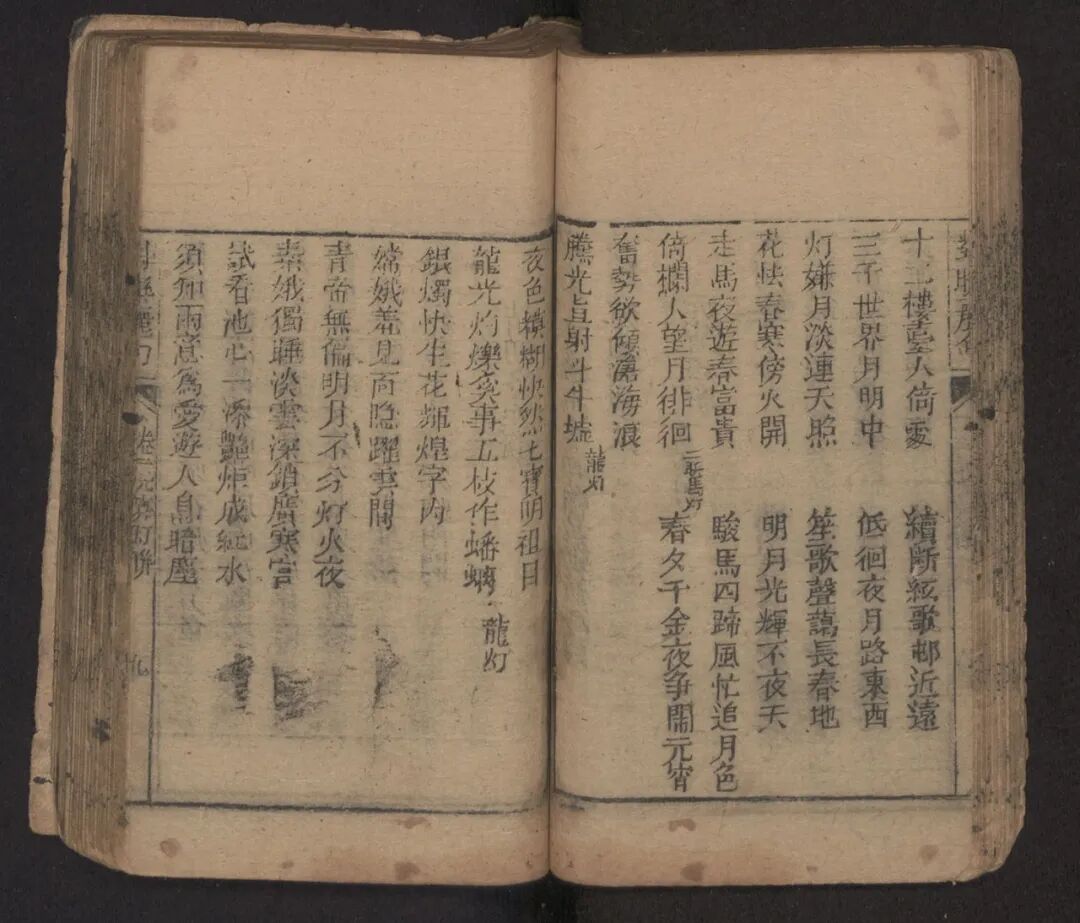 十二樓臺人倚 續斷絃歌邨近遠
三千世界月明中 低徊夜月路東西
灯嫌月淡連天照 笙歌聲藹長春地
花怯春寒傍火開 明月光輝不夜天
走馬夜遊春富貴 駿馬四蹄風忙追月色
倚欄人望月徘徊 二联馬灯 春夕千金夜争閙元宵
奮勢欲傾滄海浪
騰光直射斗牛墟 龍灯
夜色模糊恍然七寳明祖日
龍光灼爍奚事五枝作蟠螭 龍灯
銀燭快生花輝煌字内
嫦娥羞見面隐躍雲間
青帝無偏明月不分灯火夜
素娥獨睡淡雲深鎖廣寒宫
試看池心一滚艷炬成紅水
須知雨意爲愛遊人息暗塵
卷 灯聯 九